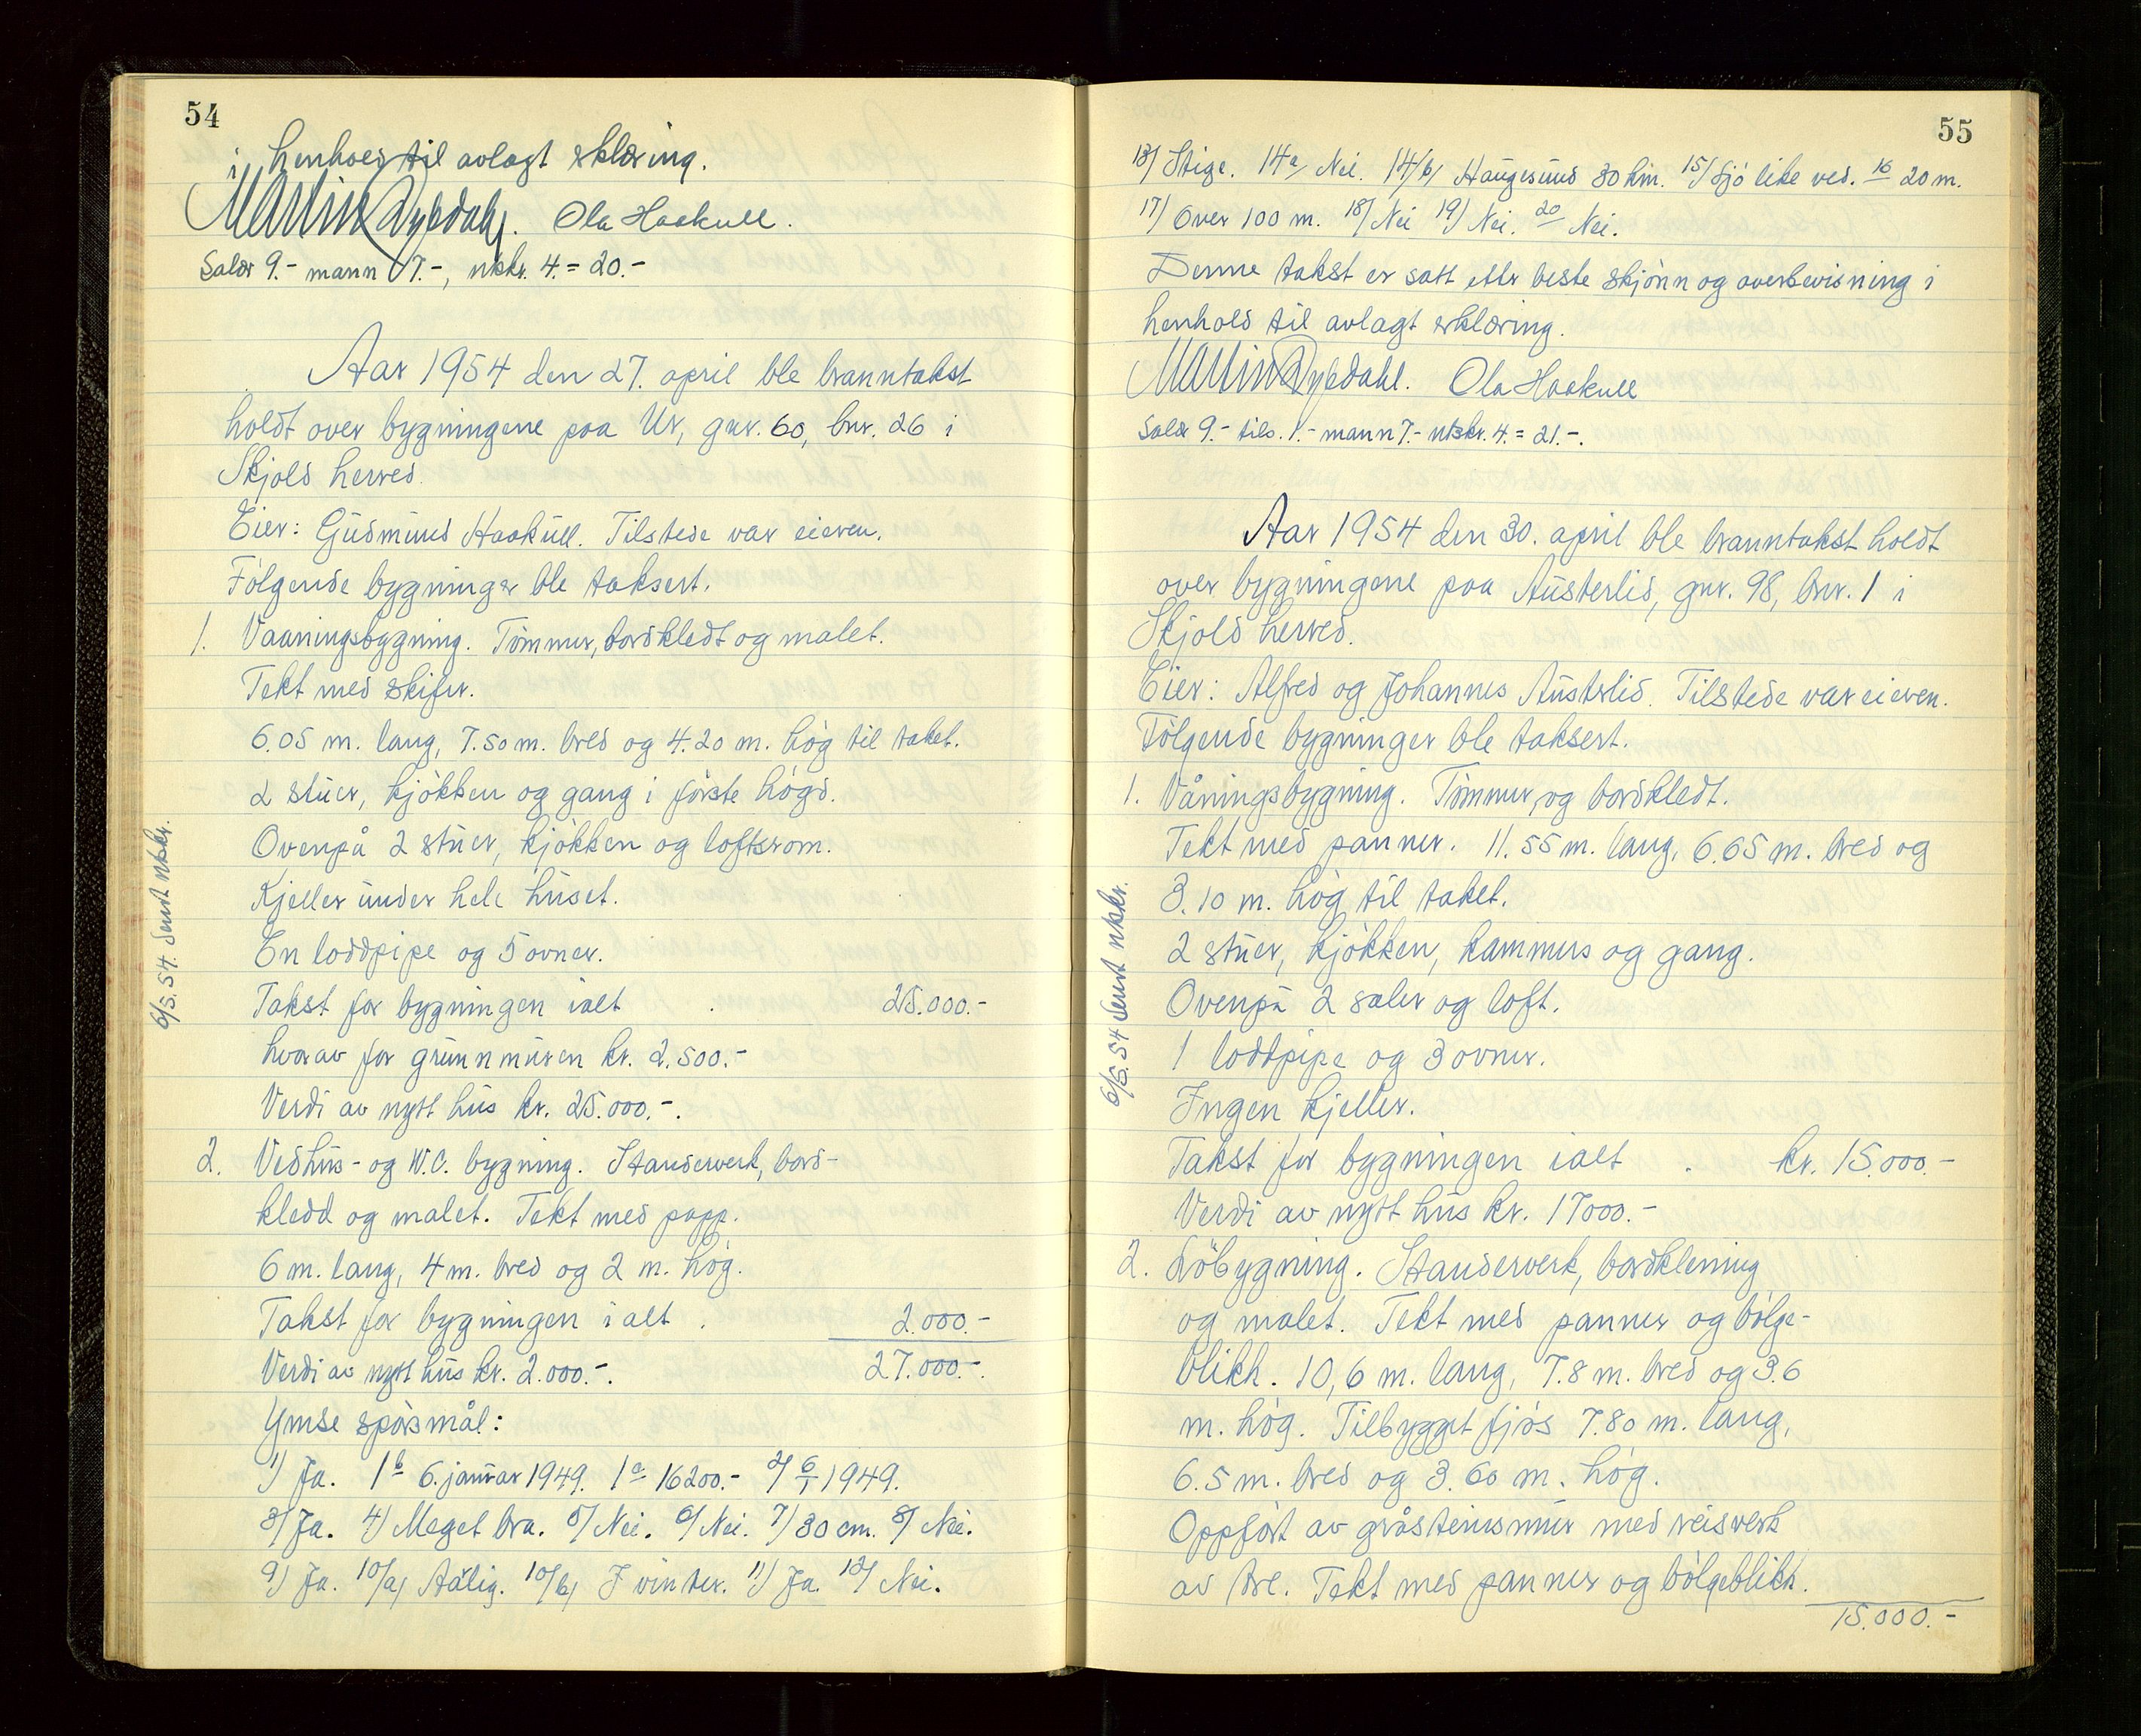 54
i henhold til avlagt erklæring.
Martin Dybdahl. Ola Haakull.
Salær 9.- mann 7.-, utskr. 4. = 20.-
Aar 1954 den 27. april ble branntakst
holdt over bygningene paa Ur, gnr. 60, bnr. 26 i
Skjold herred.
Eier: Gudmund Haakull. Tilstede var eieren.
Følgende bygninger ble taksert.
1. Vaaningsbygning. Tömmer, bordkledt og malet.
Tekt med skifer.
6.05 m. lang, 7.50 m. bred og 4.20 m. høg til taket.
2 stuer, kjøkken og gang i første høgd.
Ovenpå 2 stuer, kjøkken og loftsrom.
Kjeller under hele huset.
En loddpipe og 5 ovner.
Takst for bygningen ialt . 25.000.-
hvorav for grunnmuren kr. 2.500.-
Verdi av nytt hus kr. 25.000.-.
2. Vedhus- og W.C. bygning. Standerverk, bord-
kledd og malet. Tekt med papp.
6 m. lang, 4 m. bred og 2 m. høg.
Takst for bygningen i alt . 2.000.-
Verdi av nytt hus kr. 2.000.-. 27.000.-.
Ymse spørsmål:
1) Ja. 1b 6. januar 1949. 1a 16200.- 2) 6/1 1949.
3) Ja. 4) Meget bra. 5) Nei. 6) Nei. 7) 30 cm. 8) Nei.
9) Ja. 10/a) Aarlig. 10/b) I vinter. 11) Ja. 12) Nei.
6/5.54. Sendt utskr.
55
13) Stige. 14a) Nei. 14/b) Haugesund 30 km. 15) Sjø like ved. 16 20 m.
17) Over 100 m. 18) Nei 19) Nei. 20 Nei.
Denne takst er satt etter beste skjønn og overbevisning i
henhold til avlagt erklæring.
Martin Dybdahl. Ola Haakull
Salær 9.- tils. 1.- mann 7.- utskr. 4. = 21.-.
Aar 1954 den 30. april ble branntakst holdt
over bygningene paa Austerlid, gnr. 98, bnr. 1 i
Skjold herred.
Eier: Alfred og Johannes Austerlid. Tilstede var eieren.
Følgende bygninger ble taksert.
1. Våningsbygning. Tømmer, og bordkledt.
Tekt med panner. 11.55 m. lang, 6.65 m. bred og
3.10 m. høg til taket.
2 stuer, kjøkken, kammers og gang.
Ovenpå 2 saler og loft.
1 loddpipe og 3 ovner.
Ingen kjeller.
Takst for bygningen ialt . kr. 15.000.-
Verdi av nytt hus kr. 17000.-
2. Löbygning. Standerverk, bordkledning
og malet. Tekt med panner og bølge-
blikk. 10,6 m. lang, 7.8 m. bred og 3.6
m. høg. Tilbygget fjøs 7.80 m. lang,
6.5 m. bred og 3.60 m. høg.
Oppført av gråsteinsmur med reisverk
av tre. Tekt med panner og bølgeblikk.
15.000.-
6/5.54 Sendt utskr.